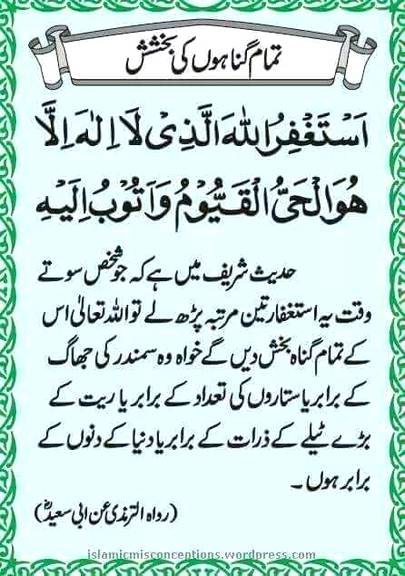 تمام گناہوں کی بخشش
اَسْتَغْفِرُ اللهَ الَّذِیْ لَا اِلٰهَ اِلَّا
هُوَ الْحَیُّ الْقَیُّوْمُ وَاَتُوْبُ اِلَیْهِ
حدیث شریف میں ہے کہ جو شخص سوتے
وقت یہ استغفار تین مرتبہ پڑھ لے تو اللہ تعالیٰ اس
کے تمام گناہ بخش دیں گے خواہ وہ سمندر کی جھاگ
کے برابر یا ستاروں کی تعداد کے برابر یا ریت کے
بڑے ٹیلے کے ذرات کے برابر یا دنیا کے دنوں کے
برابر ہوں ۔
(رواہ الترمذی عن ابی سعیدؓ)
islamicmisconceptions.wordpress.com